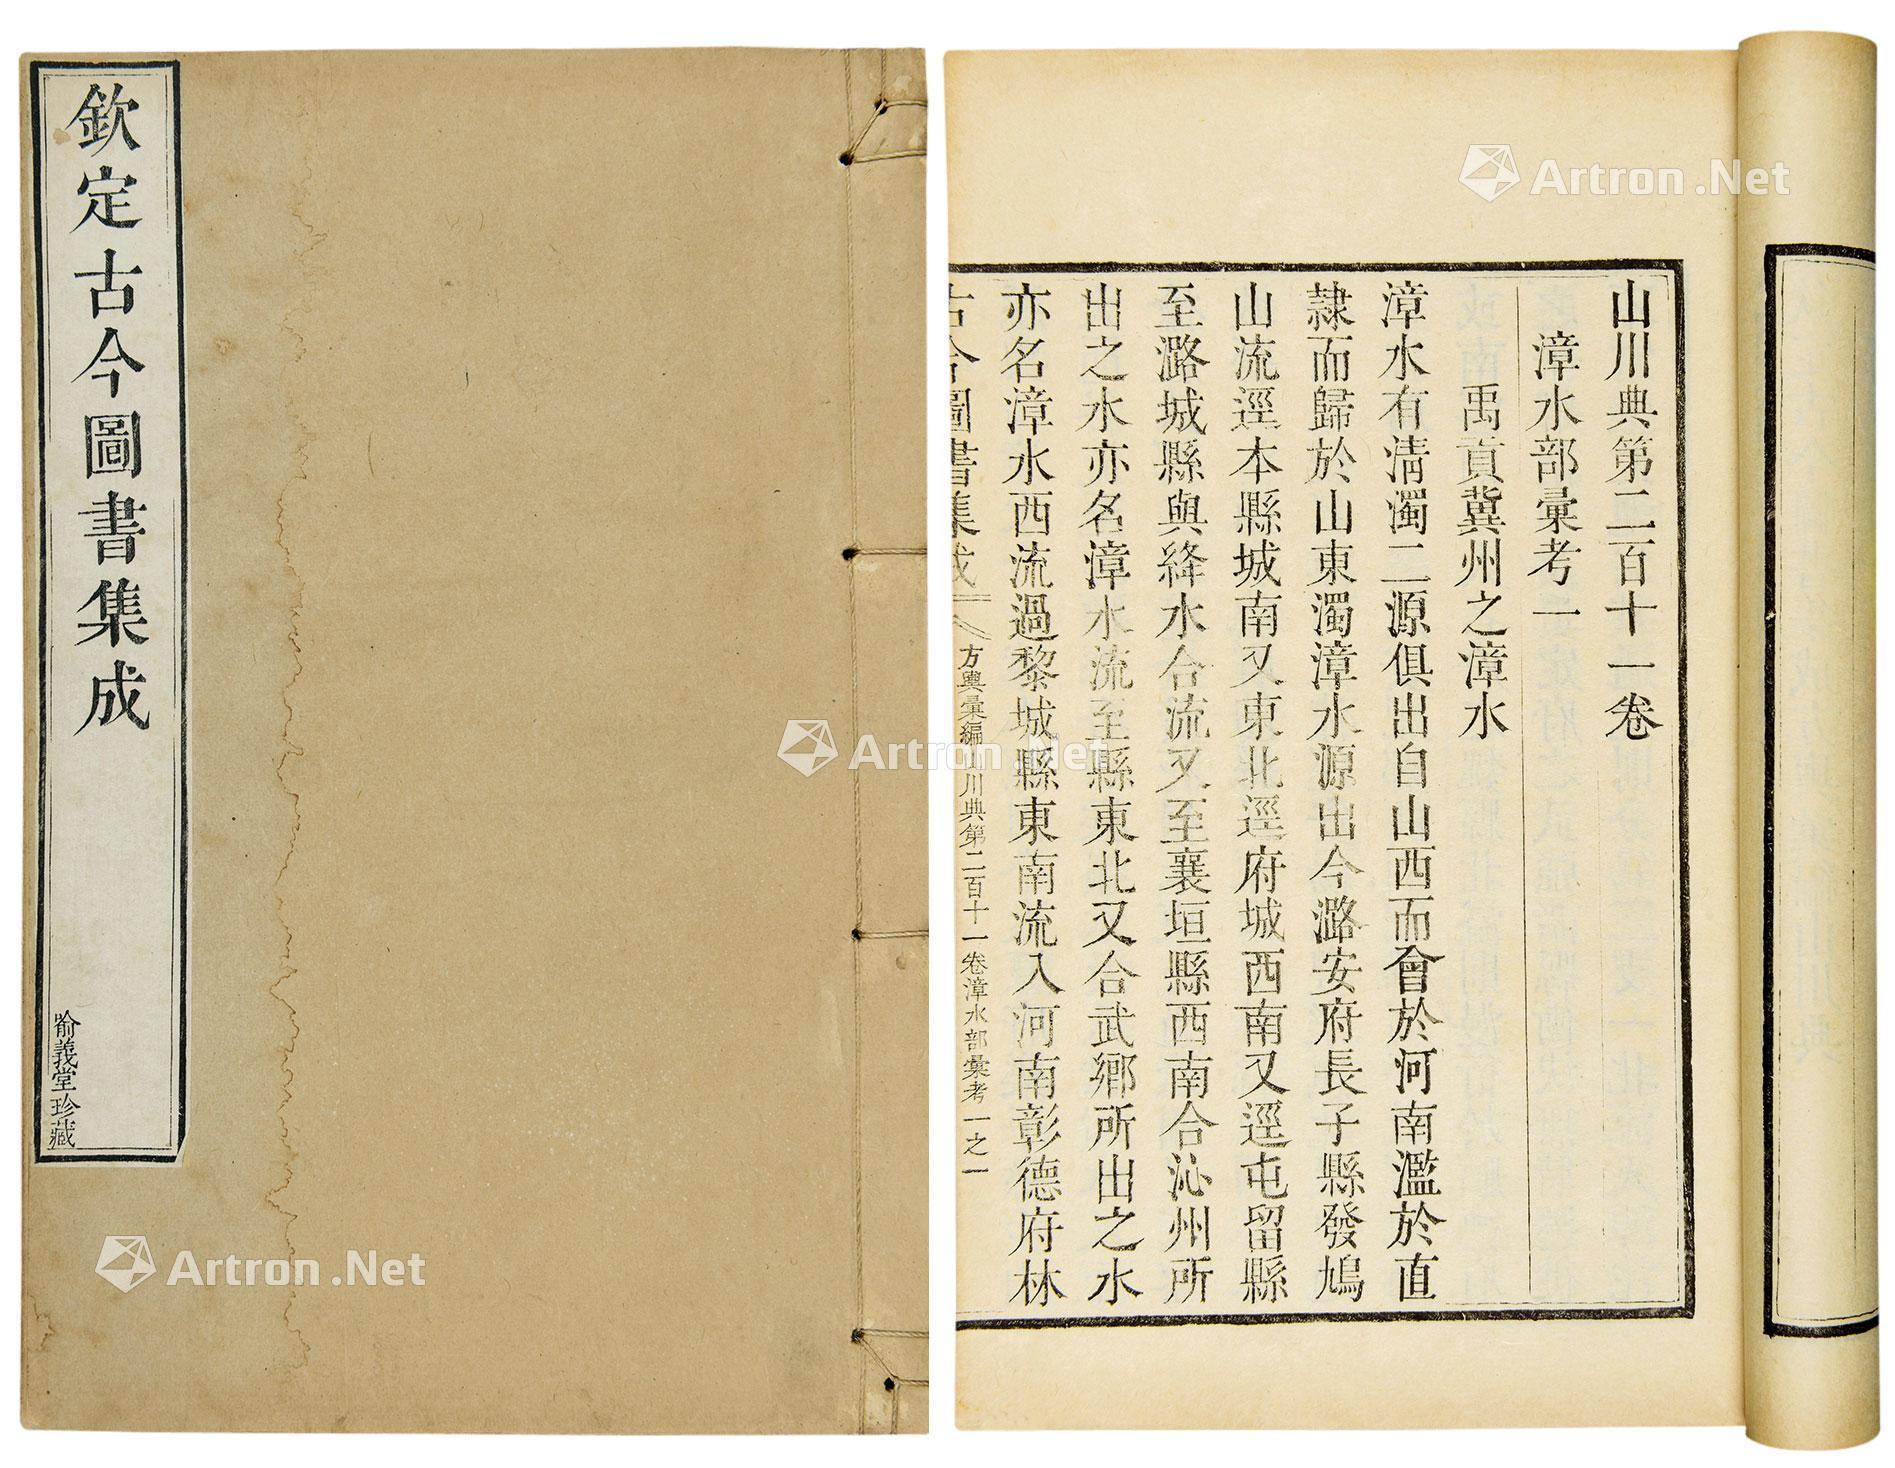 欽定古今圖書集成
喻義堂珍藏
山川典第二百十一卷
漳水部彙考一
禹貢冀州之漳水
漳水有淸濁二源俱出自山西而會於河南濫於直
隷而歸於山東濁漳水源出今潞安府長子縣發鳩
山流逕本縣城南又東北逕府城西南又逕屯留縣
至潞城縣與絳水合流又至襄垣縣西南合沁州所
出之水亦名漳水流至縣東北又合武鄉所出之水
亦名漳水西流過黎城縣東南流入河南彰德府林
古今圖書集成
方輿彙編山川典第二百十一卷漳水部彙考一之一
Artron.Net
Artron.Net
Artron.Net